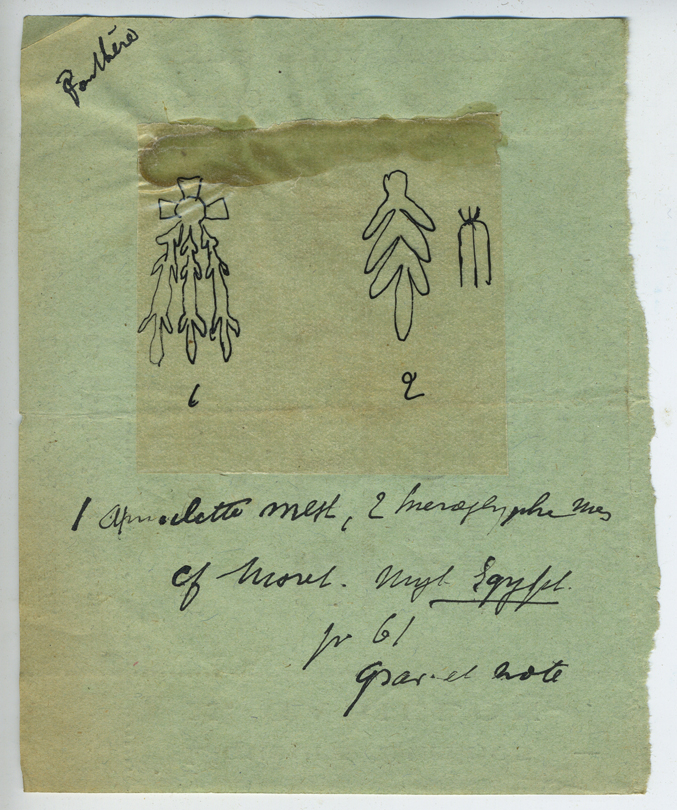 Panthère
1 2
1 amulette mest, 2 hieroglyphe mes
cf Moret. Myst Egypt.
p 61
grav. et note